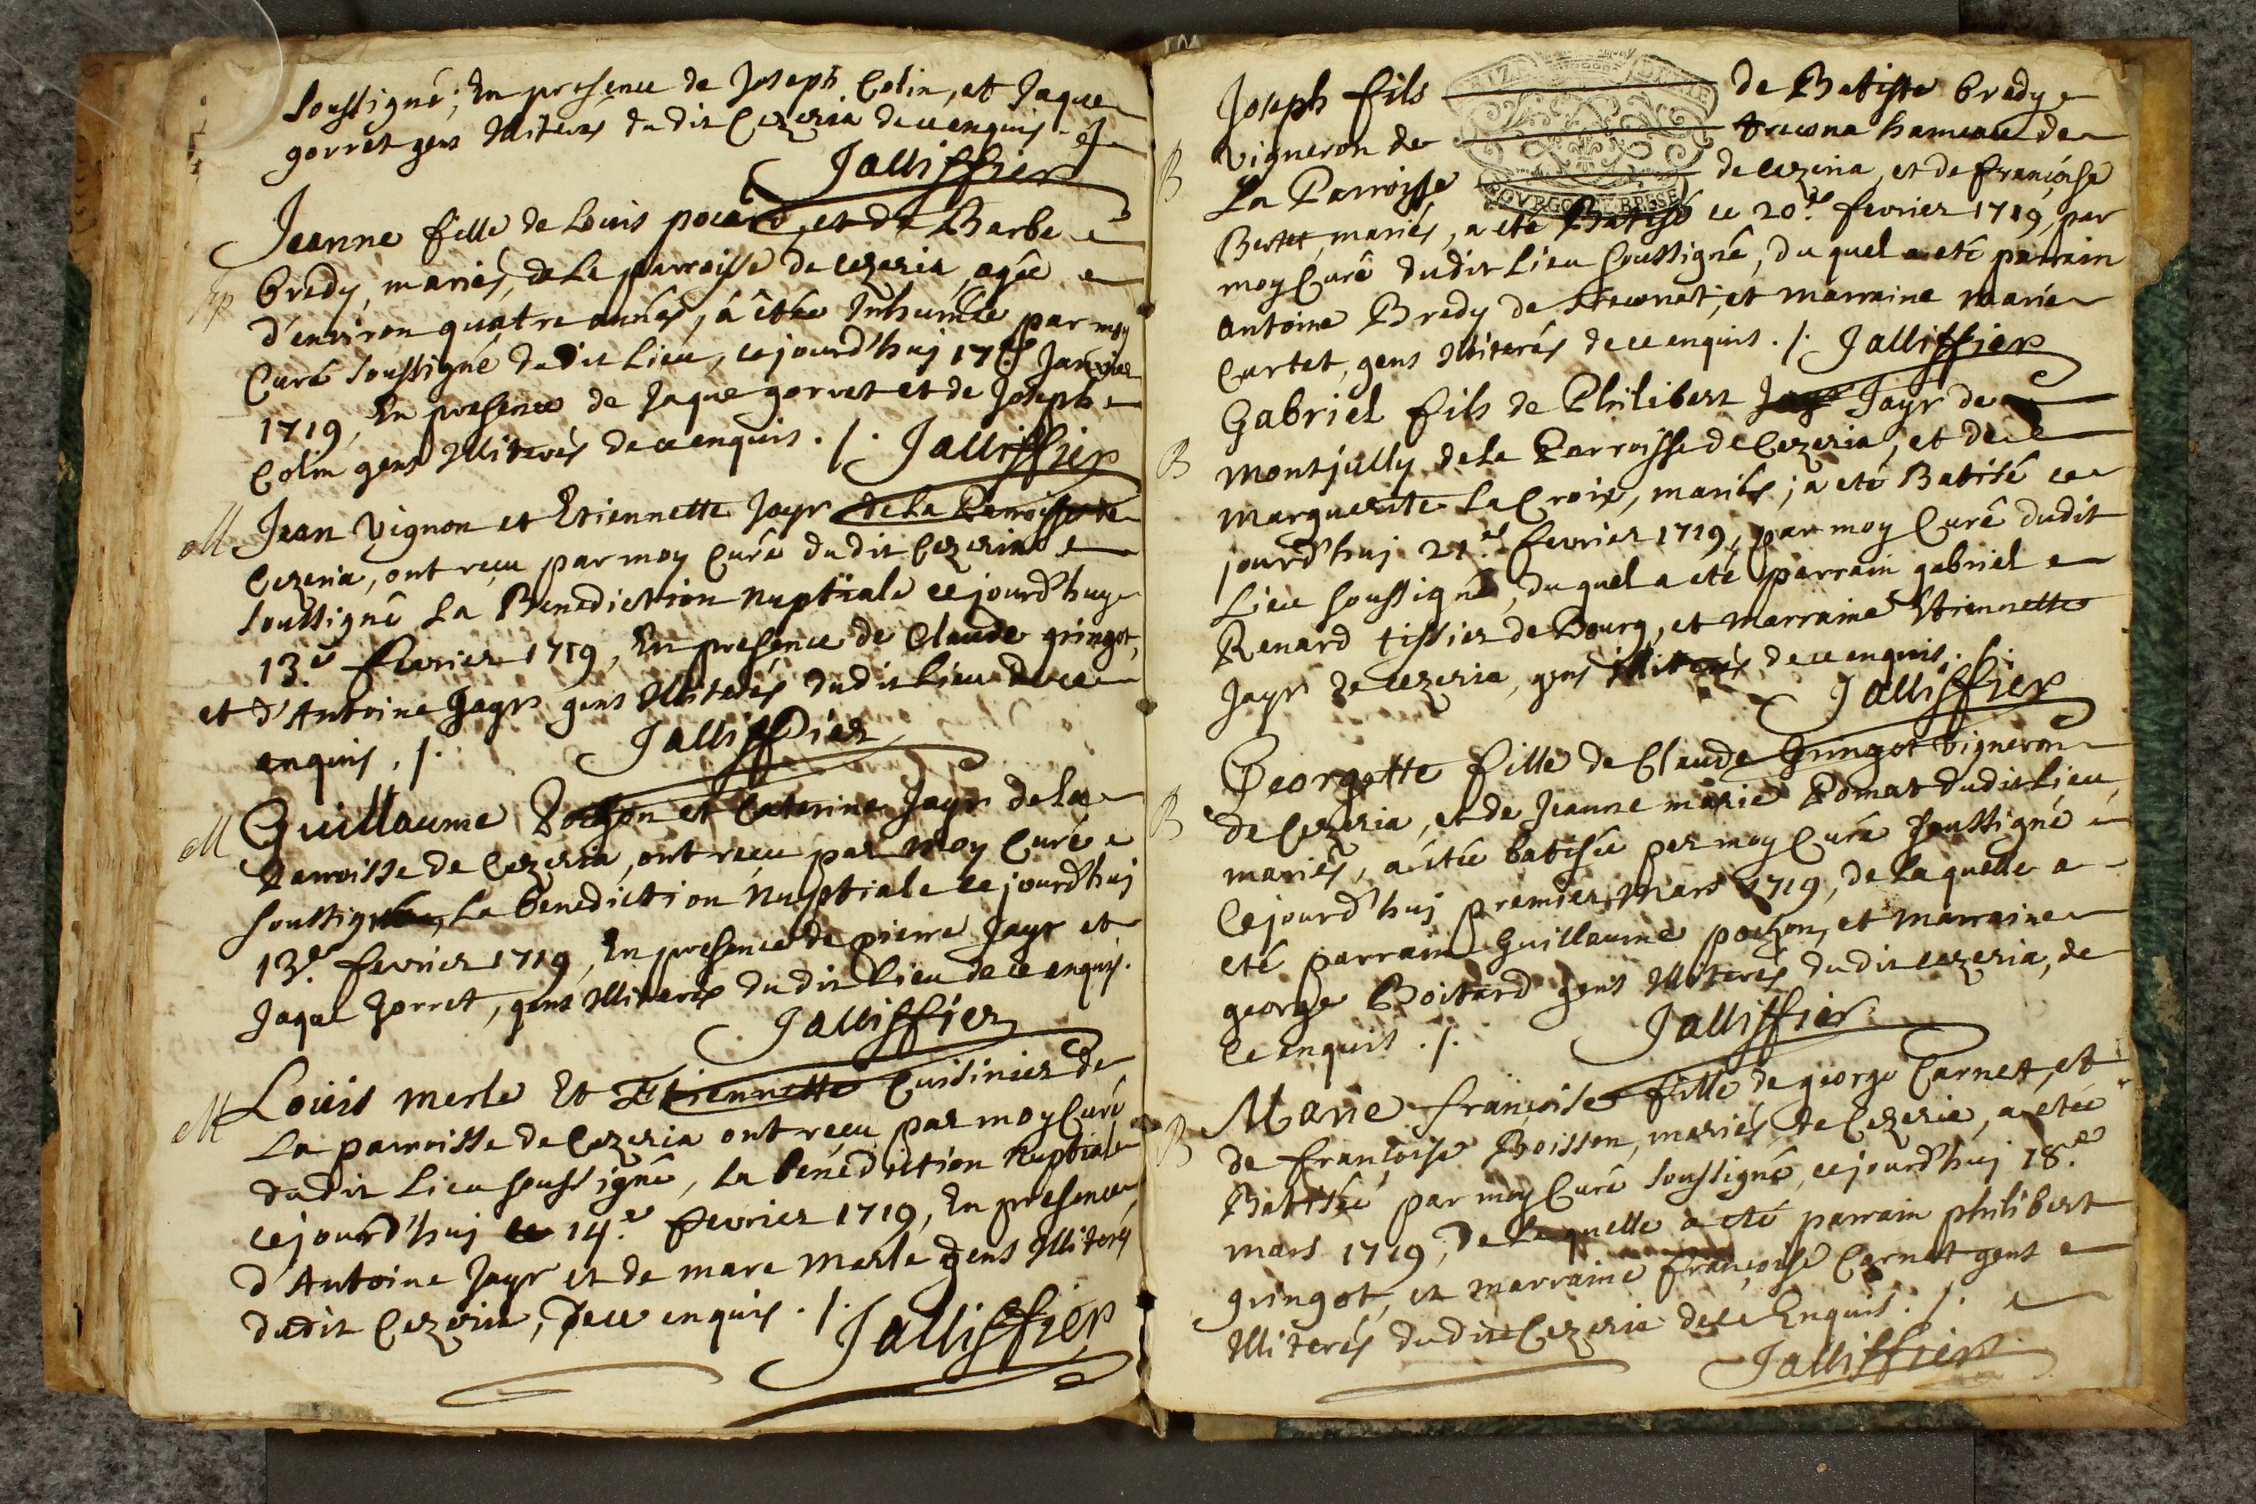 Soussigné; En presence de Joseph Colin, et Jaque
gorret gens Illiterés du dit Cezeria de ce enquis. /.
Jalliffier
Jeanne fille de Louis pocard, et de Barbe
Sep
bredy, mariés, de La parroisse de cezeria, agée
d'environ quatre années, à étée Inhumée par moy
Curé Soussigné du dit Lieu, cejourd'huj 17.e Janvier
1719, En presence de Jaque gorret et de Joseph
Colin gens Illiterés de ce enquis. /. Jalliffier
M Jean Vignon et Etiennette Jayr de La Parroisse de
Cezeria, ont reçu par moy Curé du dit Cezeria
Soussigné La Benediction Nuptiale cejourd'huy
13.e fevrier 1719, En presence de Claude gringot,
et d'Antoine Jayr gens Illiterés du dit Lieu de ce
enquis, /. Jalliffier
M Guillaume Pochon et Caterine Jayr de La
Parroisse de Cezeria, ont reçu par moy Curé
Soussigné, La benediction Nuptiale cejourd'huj
13.e fevrier 1719, En presence de pierre Jayr et
Jaque Gorret, gens Illiterés du dit Lieu de ce enquis.
Jalliffier
M Louis merle Et Etiennette Cuisinier de
La parroisse de Cezeria ont reçu par moy Curé
du dit Lieu soussigné, La benediction Nuptiale
cejourd'huj ce 14.e fevrier 1719, En presence
d'Antoine Jayr et de marc merle gens Illiterés
dudit Cezeria, De ce enquis. /. Jalliffier
Joseph fils de Batiste bredy
B Vigneron de trecona hameau de
La Parroisse de cezeria, et de françoise
BOURGOG BRESSE
Bertet, mariés, a eté Batisé ce 20.e fevrier 1719, par
moy Curé dudit Lieu Soussigné, du quel a eté parrain
Antoine Bredy de treconat, et marraine marie
Curtet, gens Illiterés de ce enquis. /. Jalliffier
Gabriel fils de Philibert Jayr de
B montjully de La Parroisse de Cezeria, et de
Marguerite La Croix, mariés; a eté Batisé ce
jourd'huj 21.e fevrier 1719, par moy Curé dudit
Lieu soussigné, du quel a eté parrain gabriel
Renard tissier de Bourg, et marraine Etiennette
Jayr de cezeria, gens Illiterés de ce enquis. /.
Jalliffier
Georgette fille de Claude Gringot Vigneron
B de Cezeria, et de Jeanne marie Pomat du dit Lieu,
mariés, a étée batisée par moy Curé soussigné
Cejourd'huj premier Mars 1719, de Laquelle a
eté parrain Guillaume pochon, et Marraine
george Boitard gens Illiterés du dit cezeria, de
ce enquis. /. Jalliffier
Marie françoise fille de george Carnet, et
B de françoise Boisson, mariés, de Cezeria, a étée
Batisée par moy Curé Soussigné, cejourd'huj 18.e
mars 1719, De Laquelle a eté parrain philibert
gringot, et marraine françoise Carnet gens
Illiterés du dit Cezeria de ce Enquis. /.
Jalliffier